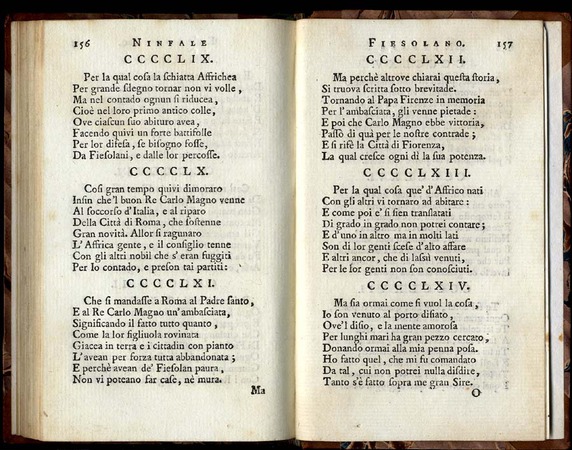 156 NINFALE
CCCCLIX.
Per la qual cosa la schiatta Affrichea
Per grande sdegno tornar non vi volle,
Ma nel contado ognun si riducea,
Cioè nel loro primo antico colle,
Ove ciascun suo abituro avea,
Facendo quivi un forte battifolle
Per lor difesa, se bisogno fosse,
Da Fiesolani, e dalle lor percosse.
CCCCLX.
Così gran tempo quivi dimoraro
Insin che'l buon Re Carlo Magno venne
Al soccorso d'Italia, e al riparo
Della Città di Roma, che sostenne
Gran novità. Allor si ragunaro
L'Affrica gente, e il consiglio tenne
Con gli altri nobil che s'eran fuggiti
Per lo contado, e preson tai partiti:
CCCCLXI.
Che si mandasse a Roma al Padre santo,
E al Re Carlo Magno un'ambasciata,
Significando il fatto tutto quanto,
Come la lor figliuola rovinata
Giacea in terra e i cittadin con pianto
L'avean per forza tutta abbandonata;
E perchè avean de' Fiesolan paura,
Non vi poteano far case, nè mura.
Ma
FIESOLANO. 157
CCCCLXII.
Ma perchè altrove chiarai questa storia,
Si truova scritta sotto brevitade.
Tornando al Papa Firenze in memoria
Per l'ambasciata, gli venne pietade:
E poi che Carlo Magno ebbe vittoria,
Passò di quà per le nostre contrade;
E si rifè la Città di Fiorenza,
La qual cresce ogni dì la sua potenza.
CCCCLXIII.
Per la qual cosa que' d'Affrico nati
Con gli altri vi tornaro ad abitare:
E come poi e' si sien translatati
Di grado in grado non potrei contare;
E d'uno in altro ma in molti lati
Son di lor genti scese d'alto affare
E altri ancor, che di lassù venuti,
Per le lor genti non son conosciuti.
CCCCLXIV.
Ma sia ormai come si vuol la cosa,
Io son venuto al porto disiato,
Ove'l disio, e la mente amorosa
Per lunghi mari ha gran pezzo cercato,
Donando ormai alla mia penna posa.
Ho fatto quel, che mi fu comandato
Da tal, cui non potrei nulla disdire,
Tanto s'è fatto sopra me gran Sire.
O